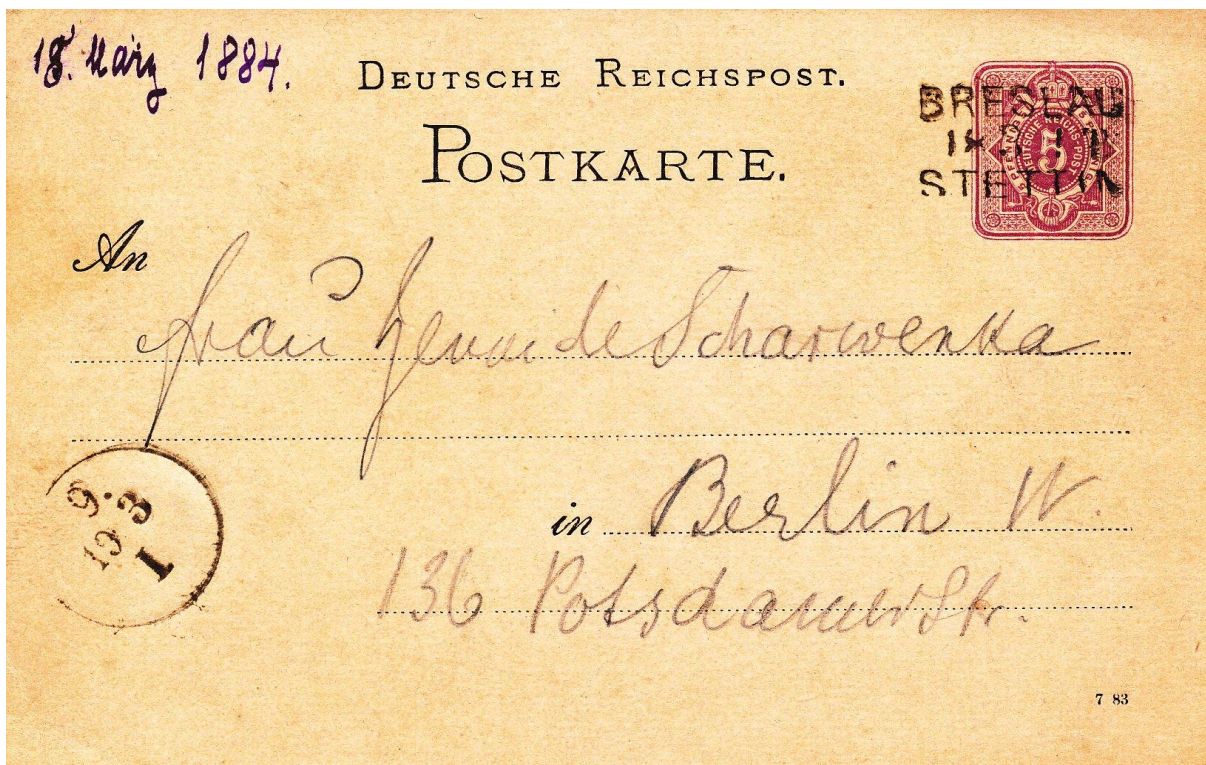 18. März 1884.
DEUTSCHE REICHSPOST.
POSTKARTE.
BRESLAU
STETTIN
5 PFENNIG
DEUTSCHE REICHS-POST
5
An
Frau Scharwenka
in Berlin W.
136 Potsdamerstr.
9. 3
I
7 83